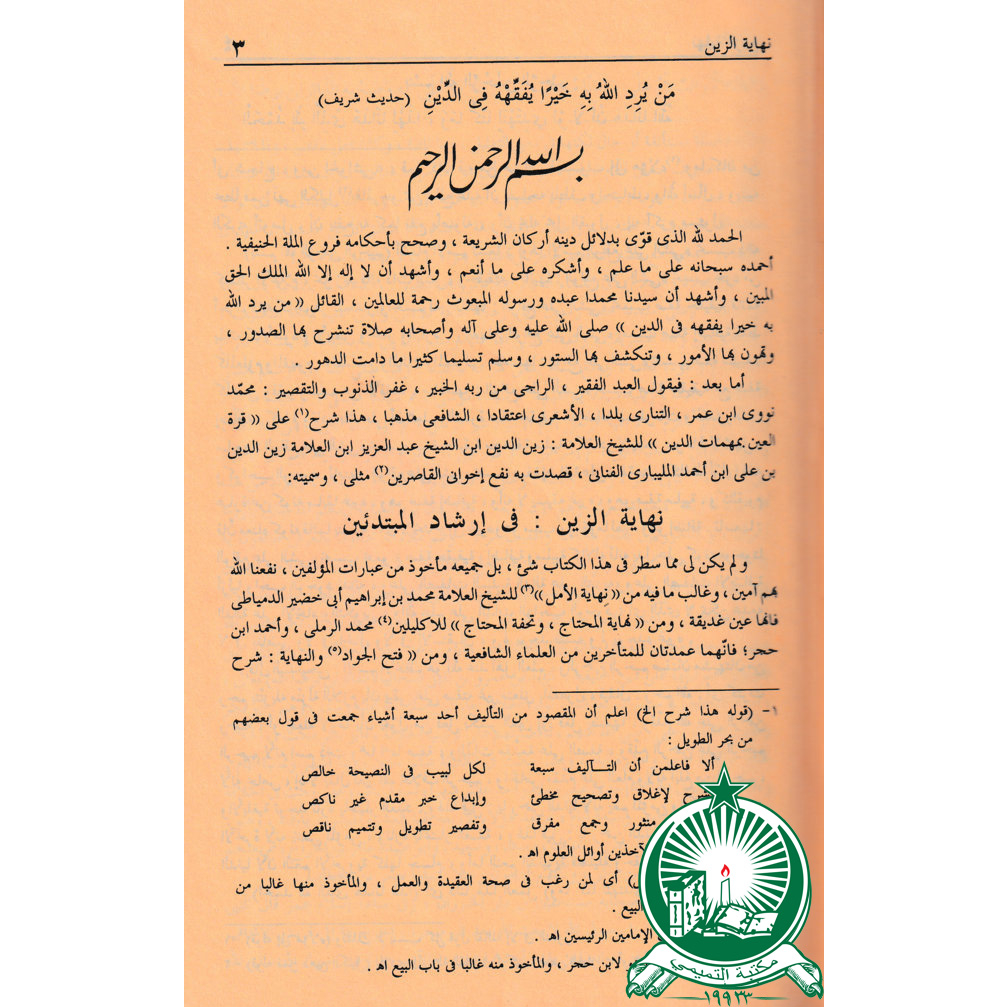 نهاية الزين ٣
مَنْ يُرِدِ اللهُ بِهِ خَيْرًا يُفَقِّهْهُ فِى الدِّيْنِ (حديث شريف)
بسم الله الرحمن الرحيم
الحمد لله الذى قوّى بدلائل دينه أركان الشريعة ، وصحح بأحكامه فروع الملة الحنيفية .
أحمده سبحانه على ما علم ، وأشكره على ما أنعم ، وأشهد أن لا إله إلا الله الملك الحق
المبين ، وأشهد أن سيدنا محمدا عبده ورسوله المبعوث رحمة للعالمين ، القائل « من يرد الله
به خيرا يفقهه فى الدين » صلى الله عليه وعلى آله وأصحابه صلاة تنشرح بها الصدور ،
وتهون بها الأمور ، وتنكشف بها الستور ، وسلم تسليما كثيرا ما دامت الدهور .
أما بعد : فيقول العبد الفقير ، الراجى من ربه الخبير ، غفر الذنوب والتقصير : محمّد
نووى ابن عمر ، التنارى بلدا ، الأشعرى اعتقادا ، الشافعى مذهبا ، هذا شرح(١) على « قرة
العين بمهمات الدين » للشيخ العلامة : زين الدين ابن الشيخ عبد العزيز ابن العلامة زين الدين
بن على ابن أحمد المليبارى الفنانى ، قصدت به نفع إخوانى القاصرين(٢) مثلى ، وسميته:
نهاية الزين : فى إرشاد المبتدئين
و لم يكن لى مما سطر فى هذا الكتاب شئ ، بل جميعه مأخوذ من عبارات المؤلفين ، نفعنا الله
بهم آمين ، وغالب ما فيه من « نِهاية الأمل »(٣) للشيخ العلامة محمد بن إبراهيم أبى خضير الدمياطى
فانها عين غديقة ، ومن « نهاية المحتاج ، وتحفة المحتاج » للاكليلين(٤) محمد الرملى ، وأحمد ابن
حجر؛ فانّهما عمدتان للمتأخرين من العلماء الشافعية ، ومن « فتح الجواد(٥) والنهاية : شرح
١- (قوله هذا شرح الخ) اعلم أن المقصود من التأليف أحد سبعة أشياء جمعت فى قول بعضهم
من بحر الطويل :
ألا فاعلمن أن التـــآليف سبعة لكل لبيب فى النصيحة خالص
شرح لإغلاق وتصحيح مخطئ وإبداع خبر مقدم غير ناكص
منثور وجمع مفرق وتفصير تطويل وتتميم ناقص
آخذين أوائل العلوم اهـ .
أى لمن رغب فى صحة العقيدة والعمل ، والمأخوذ منها غالبا من
البيع .
الإمامين الرئيسين اهـ .
لابن حجر ، والمأخوذ منه غالبا فى باب البيع اهـ .
مكتبة التميمي
١٩٩٣٣